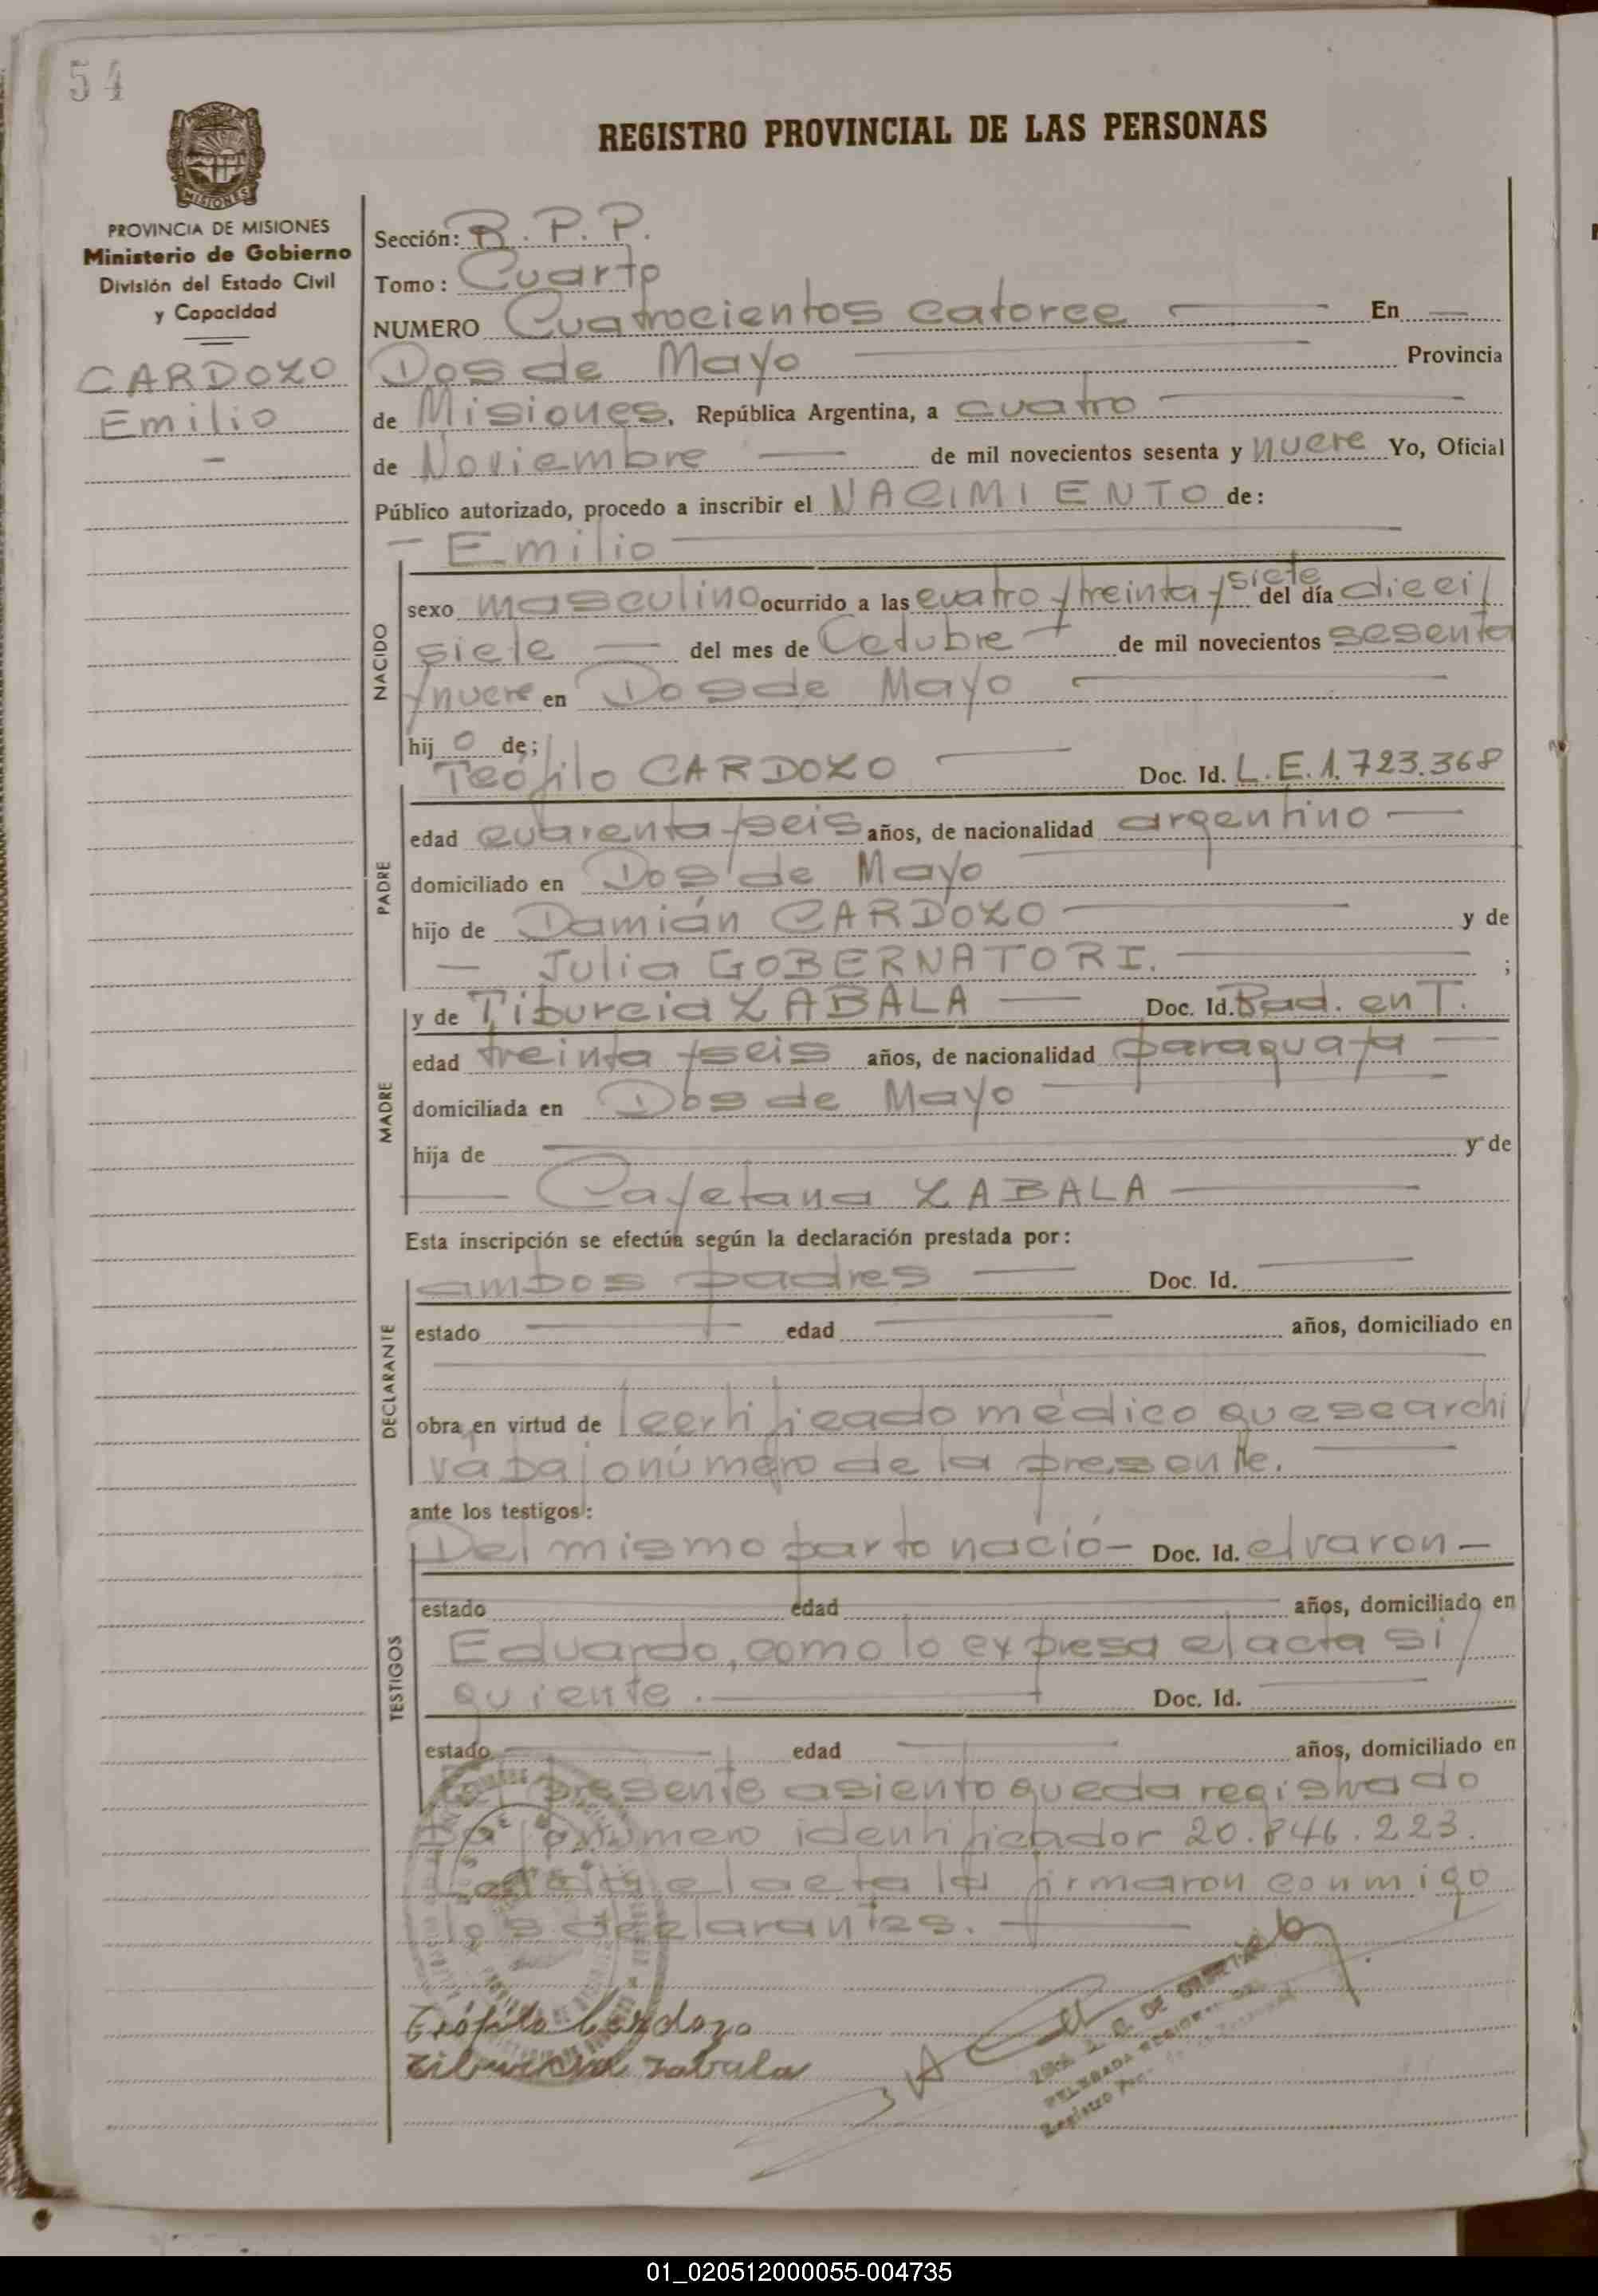 54
REGISTRO PROVINCIAL DE LAS PERSONAS
PROVINCIA DE MISIONES
Ministerio de Gobierno
División del Estado Civil
y Capacidad
CARDOZO
Emilio
Sección: R. P. P.
Tomo: Cuarto
NUMERO Cuatrocientos catorce — En —
Dos de Mayo — Provincia
de Misiones, República Argentina, a cuatro —
de Noviembre — de mil novecientos sesenta y nueve Yo, Oficial
Público autorizado, procedo a inscribir el NACIMIENTO de:
— Emilio —
NACIDO
sexo masculino ocurrido a las cuatro y treinta y siete del día dieci/
siete — del mes de Octubre — de mil novecientos sesenta
y nueve en Dos de Mayo —
hijo de;
Teófilo CARDOZO — Doc. Id. L.E. 1.723.368
PADRE
edad cuarenta y seis años, de nacionalidad argentino —
domiciliado en Dos de Mayo —
hijo de Damián CARDOZO — y de
— Julia GOBERNATORI. — ;
y de Tiburcia ZABALA — Doc. Id. Rad. en T.
MADRE
edad treinta y seis años, de nacionalidad paraguaya —
domiciliada en Dos de Mayo —
hija de — y de
— Cayetana ZABALA —
Esta inscripción se efectúa según la declaración prestada por:
ambos padres — Doc. Id. —
DECLARANTE
estado — edad — años, domiciliado en
obra en virtud de certificado médico que se archi/
va bajo número de la presente. —
ante los testigos:
Del mismo parto nació — Doc. Id. el varon —
TESTIGOS
estado edad años, domiciliado en
Eduardo, como lo expresa el acta si/
guiente. — Doc. Id. —
estado — edad — años, domiciliado en
El presente asiento queda registrado
bajo número identificador 20.846.223.
Leída el acta la firmaron conmigo
los declarantes. —
Teófilo Cardozo
Tiburcia Zabala
DELEGADA
Registro
01_020512000055-004735